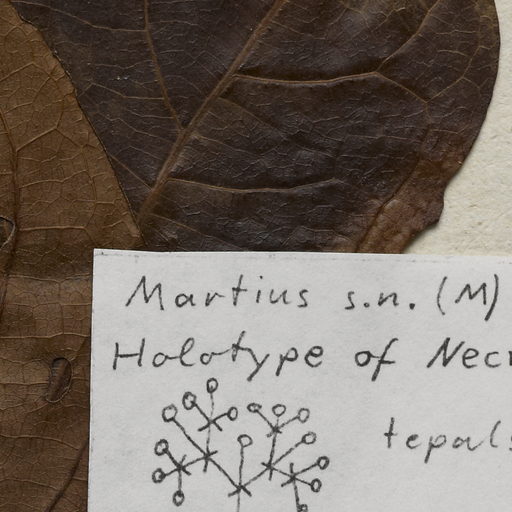 Martius s.n. (M)
Holotype of Nec
tepals